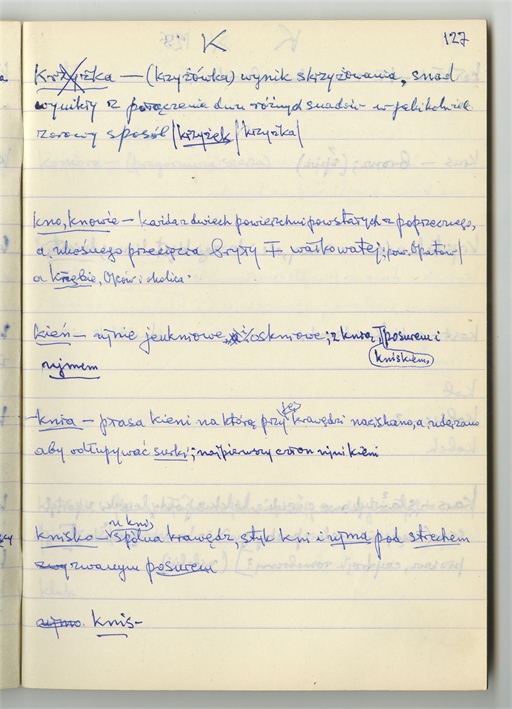 K
127
Krzyżka — (krzyżówka) wynik skrzyżowania, snad
wynikły z połączenia dwu różnych snadów w jakikolwiek
zorowy sposób /krzyżek/ krzyżka/
kno, knowie – każda z dwiech powierzchni powstałych z poprzecznego,
a ukośnego przecięcia bryły I wałkowatej; pow. Opatów/
a Krzębie, Ojców i okolica.
kień – nijnie jeukniowe i oskniowe; z knią, posurem i
kniskiem,
nijmem
knia – prasa kieni na którą przy jej krawędzi naciskano, a uderzano
aby odłupywać surki; najpierwszy człon nijni kieni
knisko – u kni, spólna krawędź, styk kni i nijma pod strechem
zwanym posurem
knis –